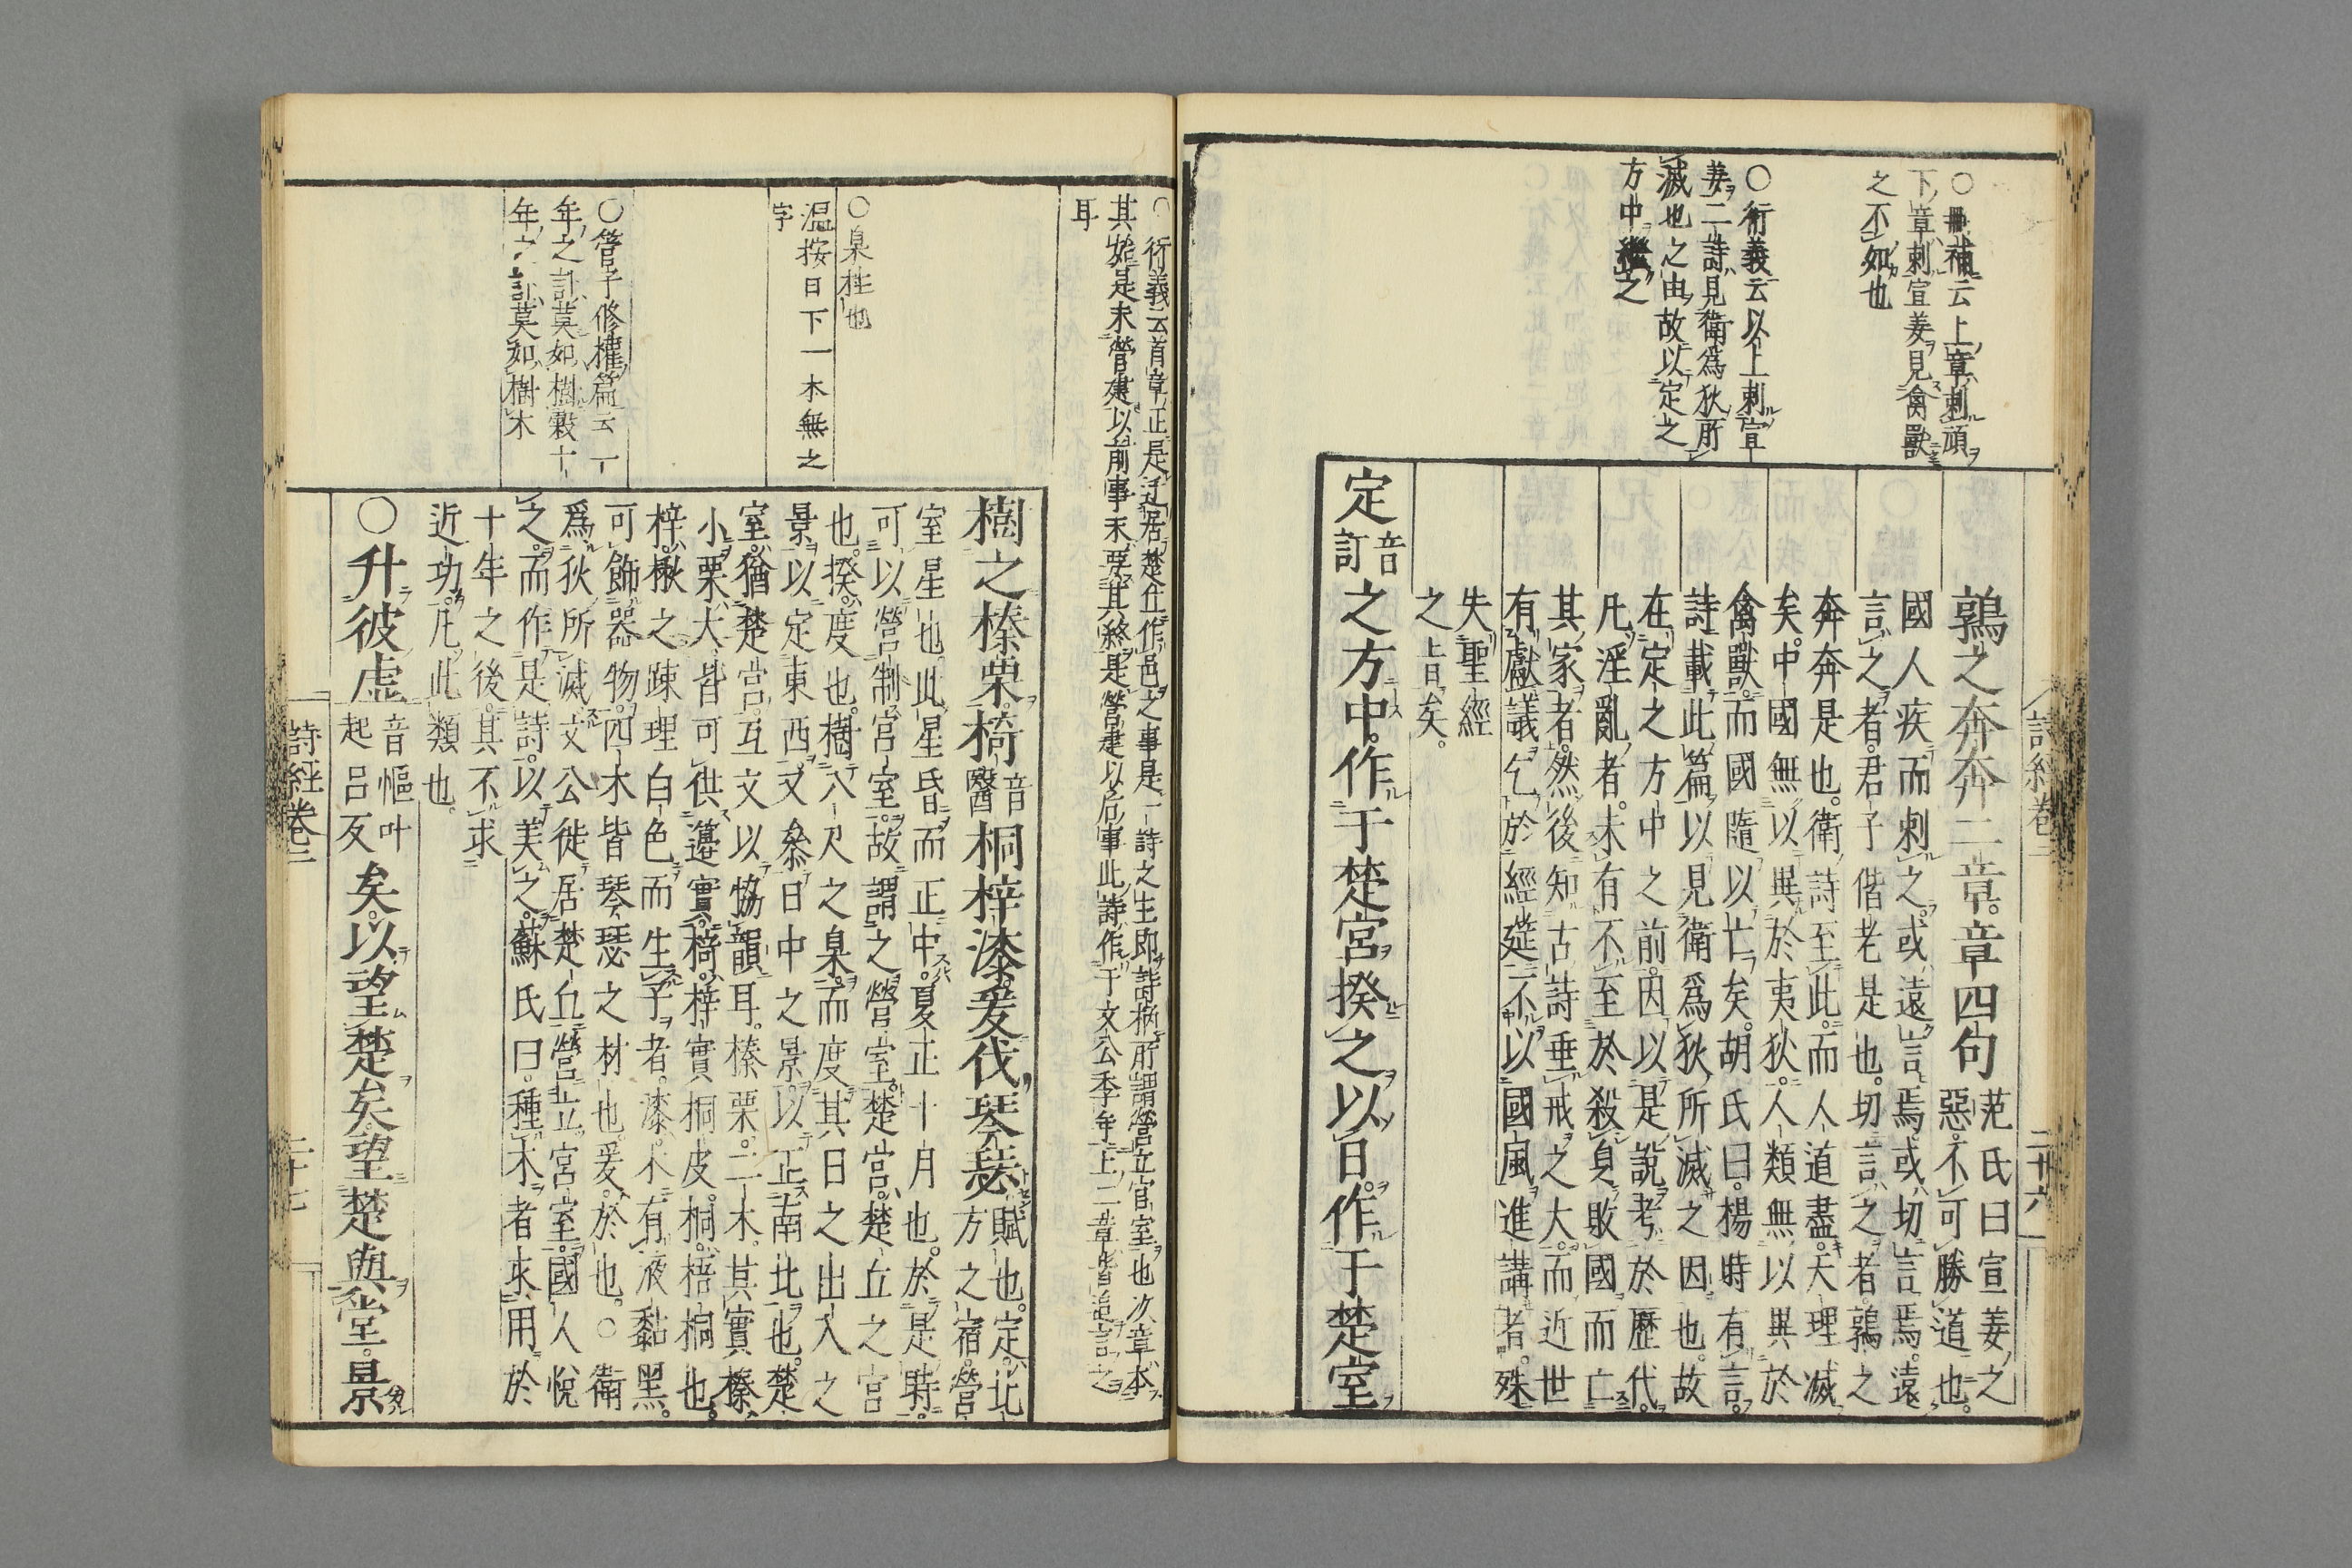 詩經卷三
二十六
○冊補云上章刺頑
下章刺宣姜見禽獸
之不如也
○衍義云以上刺宣
姜二詩見衛爲狄所
滅也之由故以定之
方中繼之
鶉之奔奔二章章四句
范氏曰宣姜之
惡不可勝道也
國人疾而刺之或遠言焉或切言焉遠
言之者君子偕老是也切言之者鶉之
奔奔是也衛詩至此而人道盡天理滅
矣中國無以異於夷狄人類無以異於
禽獸而國隨以亡矣胡氏曰楊時有言
詩載此篇以見衛爲狄所滅之因也故
在定之方中之前因以是說考於歷代
凡淫亂者未有不至於殺身敗國而亡
其家者然後知古詩垂戒之大而近世
有獻議乞於經筵不以國風進講者殊
失聖經
之旨矣
定音訂之方中作于楚宮揆之以日作于楚室
○衍義云首章正是迁居楚丘作邑之事是一詩之生即諺㨾所謂營立官室也次章本
其始是未營建以前事末要其終是營建以后事此詩作于文公季年上二章皆追言之
耳
○臬柱也
温按日下一本無之
字
○管子修權篇云一
年之計莫如樹穀十
年之計莫如樹木
樹之榛栗椅音醫桐梓漆爰伐琴瑟
賦也定北
方之宿營
室星也此星昏而正中夏正十月也於是時
可以營制宮室故謂之營室楚宮楚丘之宮
也揆度也樹八尺之臬而度其日之出入之
景以定東西又參日中之景以正南北也楚
室猶楚宮互文以協韻耳榛栗二木其實榛
小栗大皆可供籩實椅梓實桐皮桐梧桐也
梓楸之踈理白色而生子者漆木有液黏黑
可飾器物四木皆琴瑟之材也爰於也○衛
爲狄所滅文公徙居楚丘營立宮室國人悅
之而作是詩以美之蘇氏曰種木者求用於
十年之後其不求
近功凡此類也
○升彼虛音慪叶起呂反矣以望楚矣望楚與堂景
詩經卷三
二十七